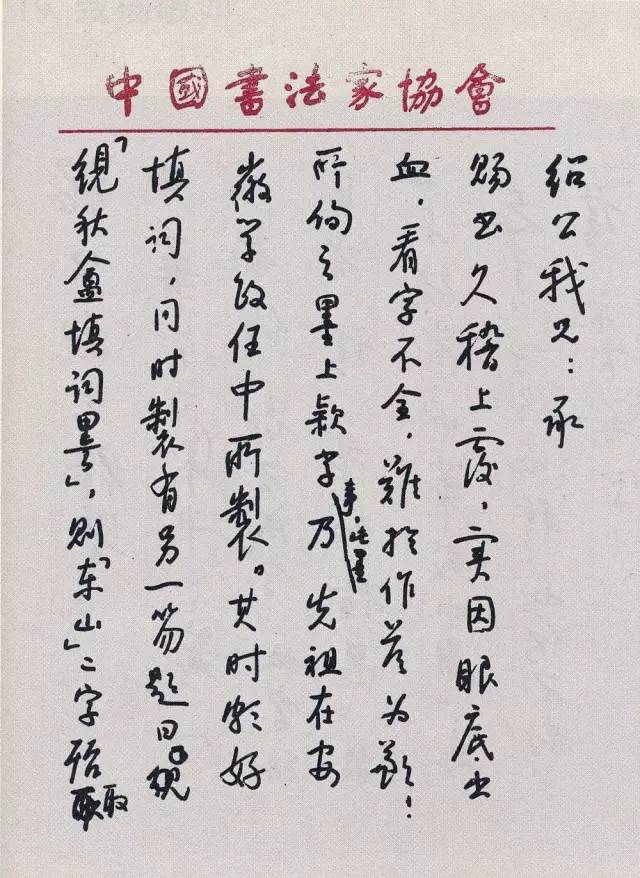 中國書法家協會
绍公我兄：承
赐书久稽上覆，实因眼底出
血，看字不全，難於作答为歉！
所询之墨上款字事，此墨乃先祖在安
徽学政任中所製。其时好
填词，同时製有另一笏题曰
秋盦填词墨」，则「东山」二字殆取